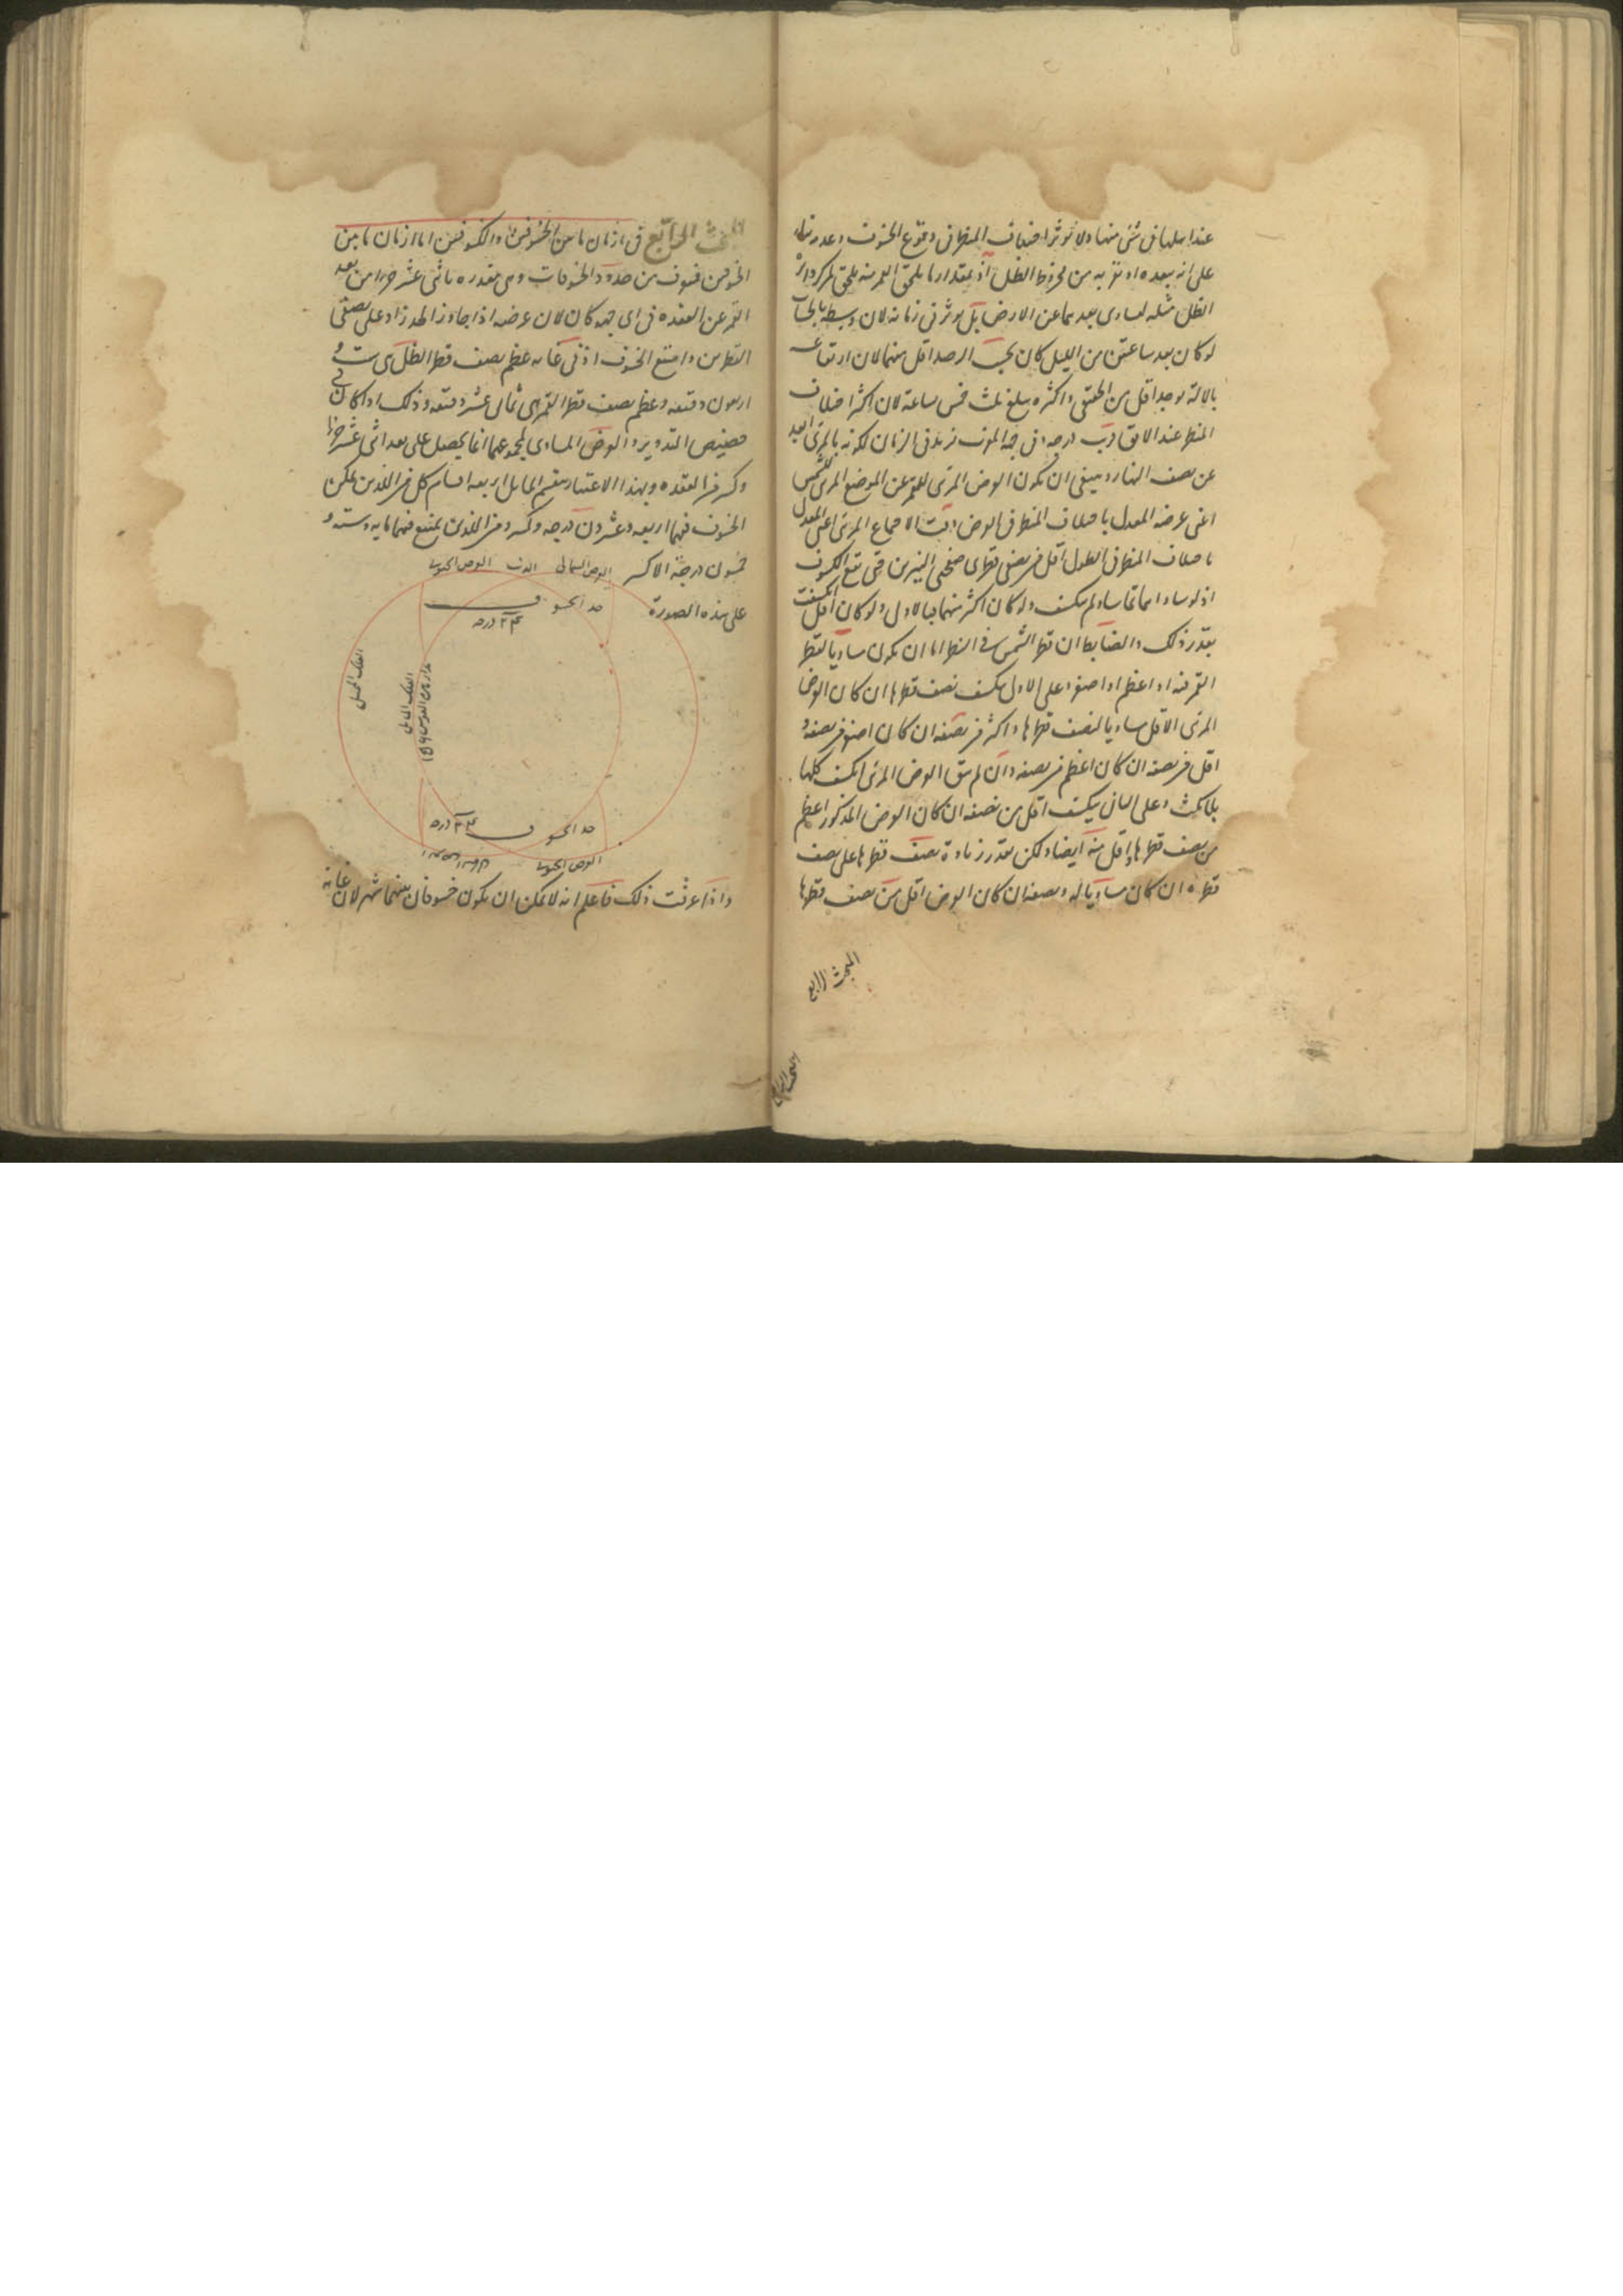 عند اهلها فى شئ منها ولا يؤثر اختلاف المنظر فى وقوع الخسوف وعدمه بناء
على انه يبعده او يقربه من مخروط الظل اذ بمقدار ما يلحق القمر منه يلحق لمركز دائرة
الظل مثله لتساوى بعديهما عن الارض بل يؤثر فى زمانه لان وسطه بالحساب
لو كان بعد ساعتين من الليل كان بحسب الرصد اقل منهما لان ارتفاعه
بالآلة يوجد اقل من الحقيقى واكثره يبلغ ثلث خمس ساعة لان اكثر اختلاف
المنظر عند الافق قريب درجة وفى جهة المغرب يزيد فى الزمان لكونه بالمرئى ابعد
عن نصف النهار وينبغى ان يكون العرض المرئى للقمر عن الموضع المرئى للشمس
اعنى عرضه المعدل باختلاف المنظر فى العرض وقت الاجتماع المرئى اعنى المعدل
باختلاف المنظر فى الطول اقل من نصفى قطرى صفحتى النيرين حتى يقع الكسوف
اذ لو ساواهما تماسا ولم ينكسف ولو كان اكثر منهما فبالاولى ولو كان اقل انكسفت
بقدر ذلك والضابط ان قطر الشمس فى النظر اما ان يكون مساويا لقطر
القمر فيه او اعظم او اصغر وعلى الاول ينكسف نصف قطرها ان كان العرض
المرئى الاقل مساويا لنصف قطرها واكثر من نصفه ان كان اصغر من نصفه و
اقل من نصفه ان كان اعظم من نصفه وان لم يبق العرض المرئى انكسف كلها
بلا مكث وعلى الثانى ينكسف اقل من نصفه ان كان العرض المذكور اعظم
من نصف قطرها واقل منه ايضا ولكن بقدر زيادة نصف قطرها على نصف
قطره ان كان مساويا له ونصفه ان كان العرض اقل من نصف قطرها
البحث الرابع
البحث الرابع فى ازمان ما بين الخسوفين والكسوفين اما ازمان ما بين
الخسوفين فتعرف من حدود الخسوفات وهى مقدرة باثنى عشر جزءا من بعد
القمر عن العقدة فى اى جهة كان لان عرضه اذا جاوز الحد زاد على نصفى
القطرين وامتنع الخسوف اذ فى غاية عظم نصف قطر الظل هى ست و
اربعون دقيقة وعظم نصف قطر القمر هى ثمانى عشر دقيقة وذلك اذا كان فى
حضيض التدوير والعرض المساوى لمجموعهما انما يحصل على بعد اثنى عشر جزءا
وكسر من العقدة وبهذا الاعتبار ينقسم المايل اربعة اقسام كل من اللذين يمكن
الخسوف فيهما اربعة وعشرون درجة وكسر ومن اللذين يمتنع فيهما مايه وستة و
خمسون درجة الا كسر
على هذه الصورة
العرض الشمالى الذنب العرض الجنوبى
حد الخسوف
٢٤ درجة
الفلك الممثل
الفلك المايل
حد الخسوف
٢٤ درجة
العرض الجنوبى
واذا عرفت ذلك فاعلم انه لا يمكن ان يكون خسوفان بينهما شهر لان غاية